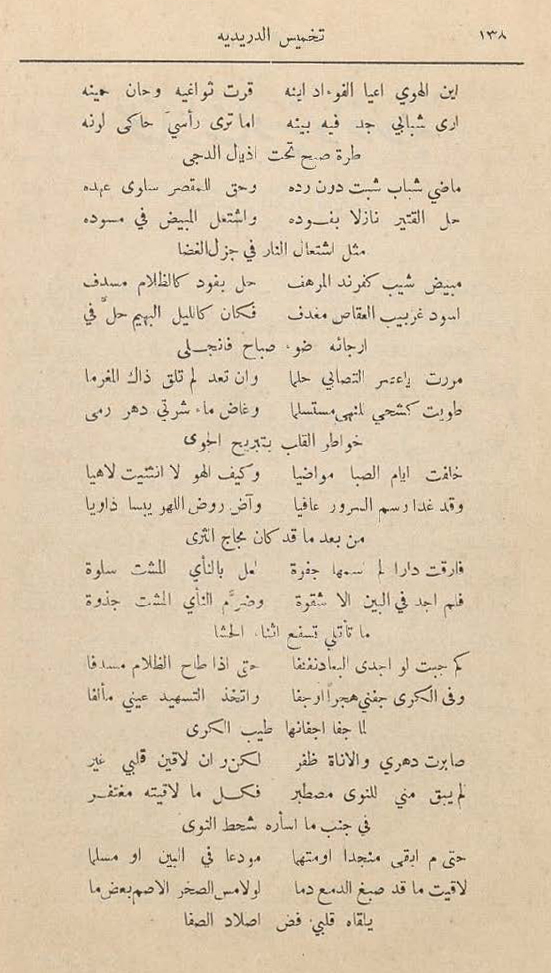 ١٣٨ تخميس الدريديه
اين الهوي اعيا الفوءاد اينه قرت ثواغيه وحان حينه
ارى شبابي جد فيه بينه اما ترى رأسي حاكى لونه
طرة صبح تحت اذيال الدجى
ماضي شباب شبت دون رده وحق للمقصر سلوى عهده
حل القتير نازلا بفوده واشتعل المبيض في مسوده
مثل اشتعال النار في جزل الغضا
مبيض شيب كفرند المرهف حل بفود كالظلام مسدف
اسود غربيب العقاص مغدف فكان كالليل البهيم حلَّ في
ارجائه ضوء صباح فانجلى
مررت يا عصر التصابي حلما وان تعد لم تلق ذاك المغرما
طويت كشحي للنهى مستسلما وغاض ماء شرتي دهر رمى
خواطر القلب بتبريح الجوى
خلفت ايام الصبا مواضيا وكيف الهو لا انثنيت لاهيا
وقد غدا رسم السرور عافيا وآض روض اللهو يبسا ذاويا
من بعد ما قد كان مجاج الثرى
فارقت دارا لم اسمها جفوة لعل بالنأي المشت سلوة
فلم اجد في البين الا شقوة وضرَّم النأي المشت جذوة
ما تأتلي تسفع اثناء الحشا
كم جبت لو اجدى البعاد نفنفا حتى اذا طاح الظلام مسدفا
وفى الكرى جفني هجراً ارجفا واتخذ التسهيد عيني مألفا
لما جفا اجفانها طيب الكرى
صابرت دهري والاناة ظفر لكن وان لاقين قلبي غير
لم يبق مني للنوى مصطبر فكل ما لاقيته مغتفر
في جنب ما اسأره شحط النوى
حتى م ابقى منجدا او متهما مودعا في البين او مسلما
لاقيت ما قد صبغ الدمع دما لو لامس الصخر الاصم بعض ما
يلقاه قلبي فض اصلاد الصفا